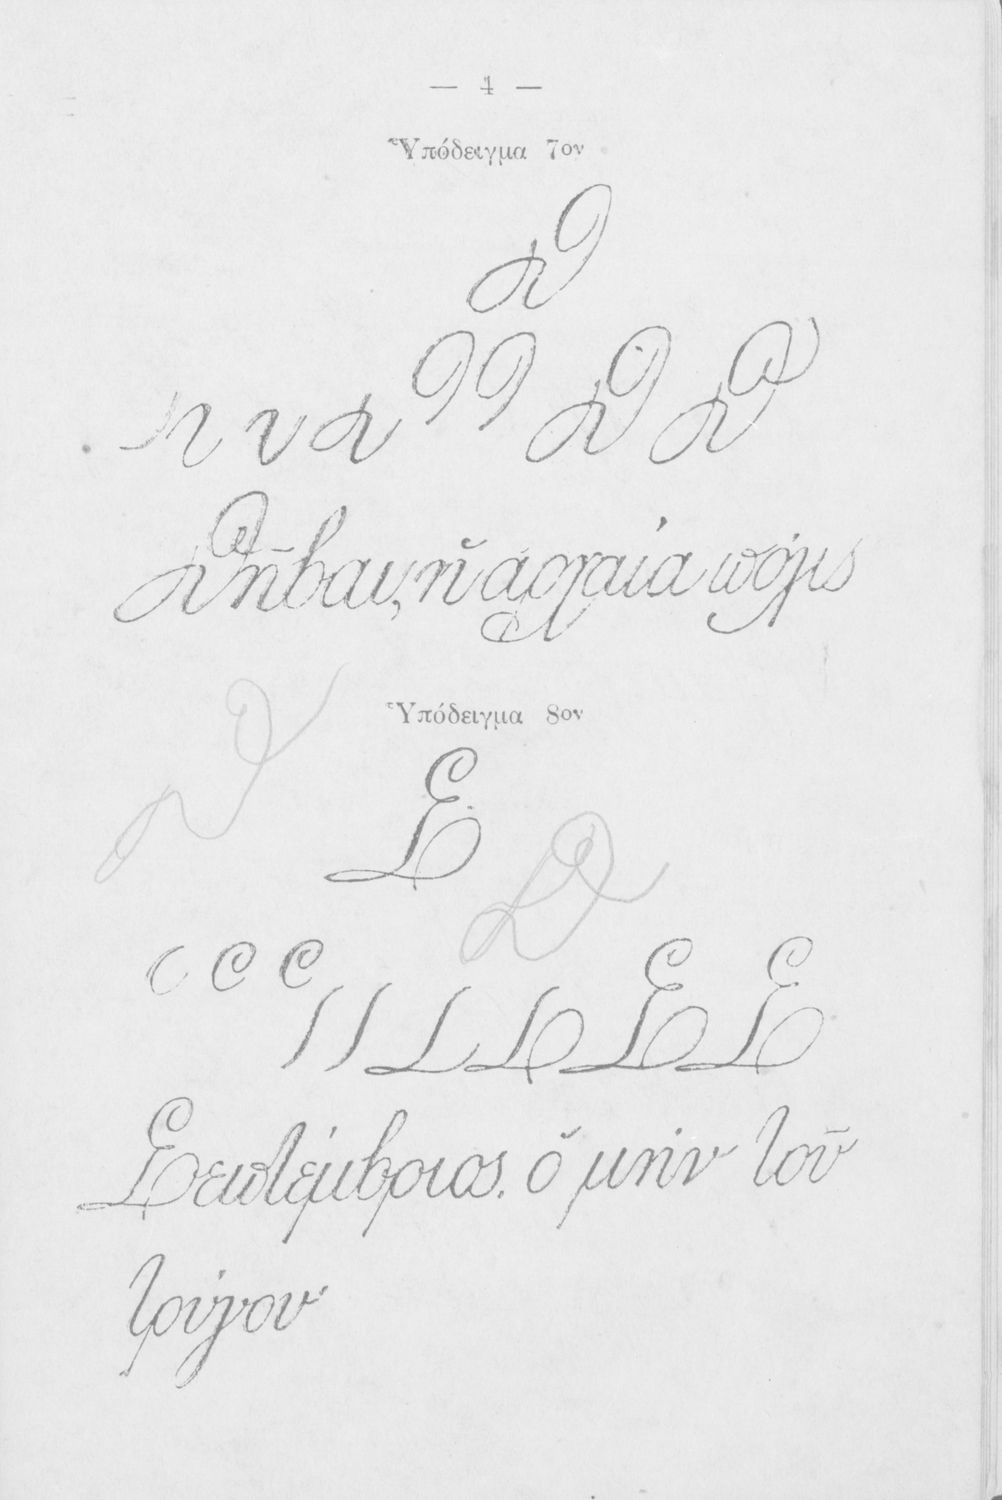 — 4 —
Ὑπόδειγμα 7ον
Θ
Θ Θ
Θῆβαι, ἡ ἀρχαία πόλις
Ὑπόδειγμα 8ον
Σ
Σ Σ
Σεπτέμβριος, ὁ μὴν τοῦ
τρύγου